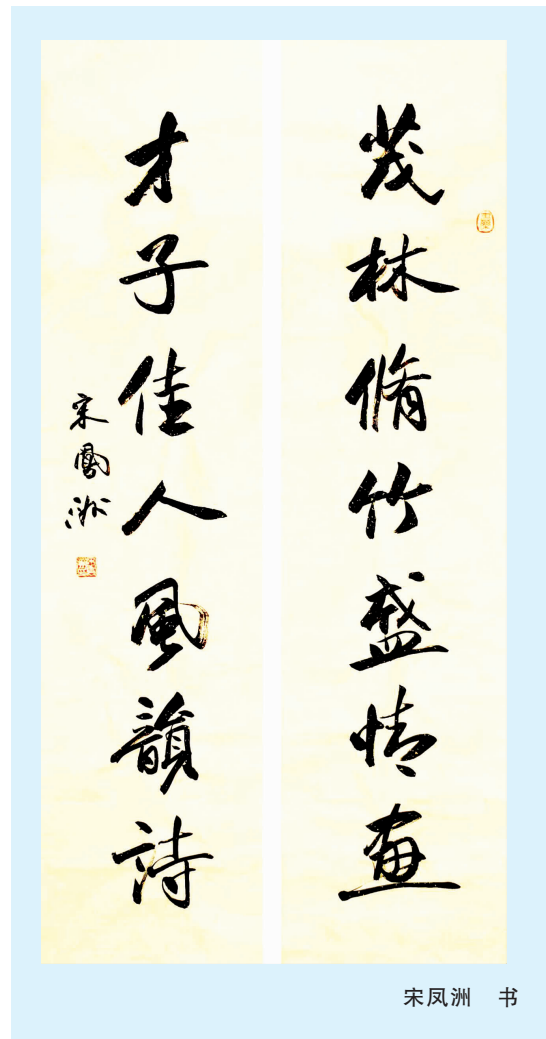 茂林脩竹盛情画
才子佳人風韻詩
宋鳳洲
宋凤洲 书